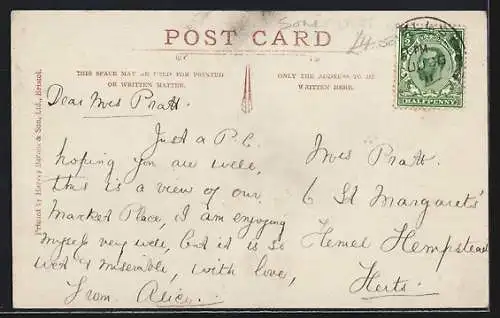 Some
£4.50
POST CARD
THIS SPACE MAY BE USED FOR PRINTED
OR WRITTEN MATTER.
ONLY THE ADDRESS TO BE
WRITTEN HERE.
HALFPENNY
Printed by Harvey Barton & Son, Ltd., Bristol.
Dear Mrs Pratt.
Just a P.C.
hoping you are well,
this is a view of our
Market Place, I am enjoying
myself very well, but it is so
wet & miserable, with love,
from Alice.
Mrs Pratt.
6 St Margarets
Hemel Hempstead
Herts.